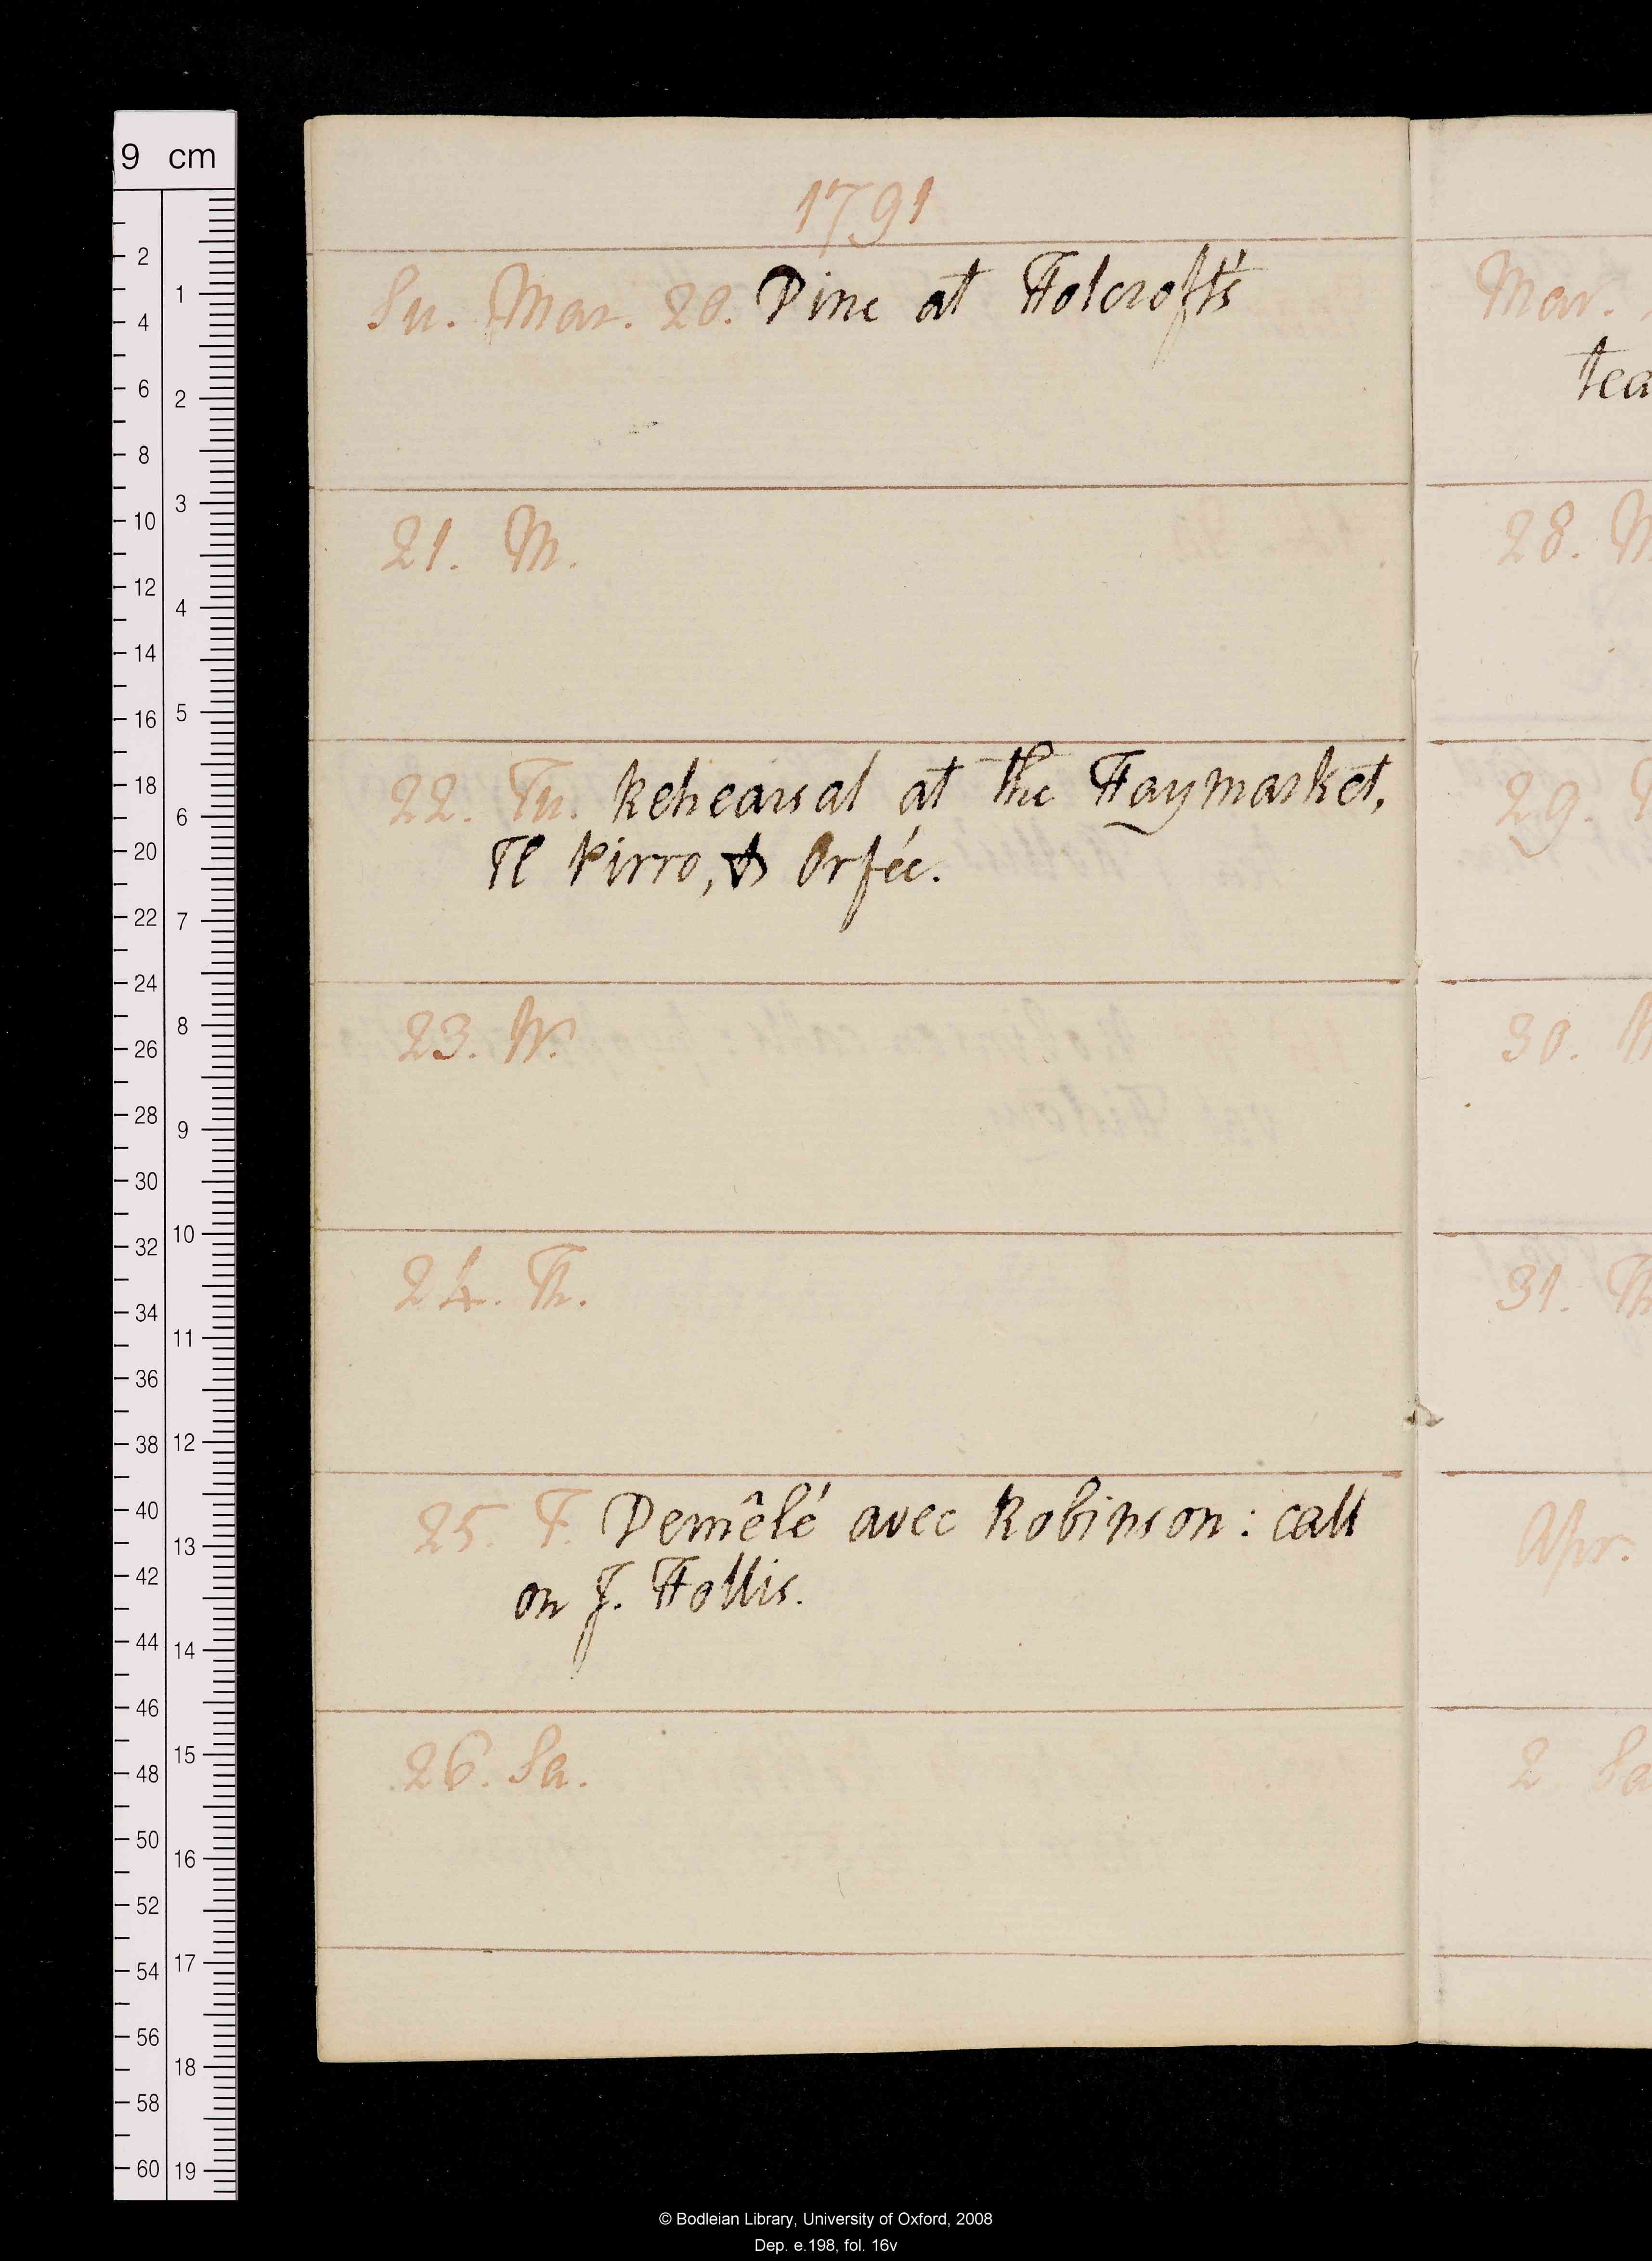 1791
Su. Mar. 20. Dine at Holcroft's
21. M.
22. Tu. Rehearsal at the Haymarket,
Il Pirro, & Orfée.
23. W.
24. Th.
25. F. Demêlé avec Robinson: call
on J. Hollis.
26. Sa.
Mar.
tea
28. M
29. T
30. W
31. Th
Apr.
2 Sa
9 cm
2
4
6
8
10
12
14
16
18
20
22
24
26
28
30
32
34
36
38
40
42
44
46
48
50
52
54
56
58
60
1
2
3
4
5
6
7
8
9
10
11
12
13
14
15
16
17
18
19
© Bodleian Library, University of Oxford, 2008
Dep. e.198, fol. 16v